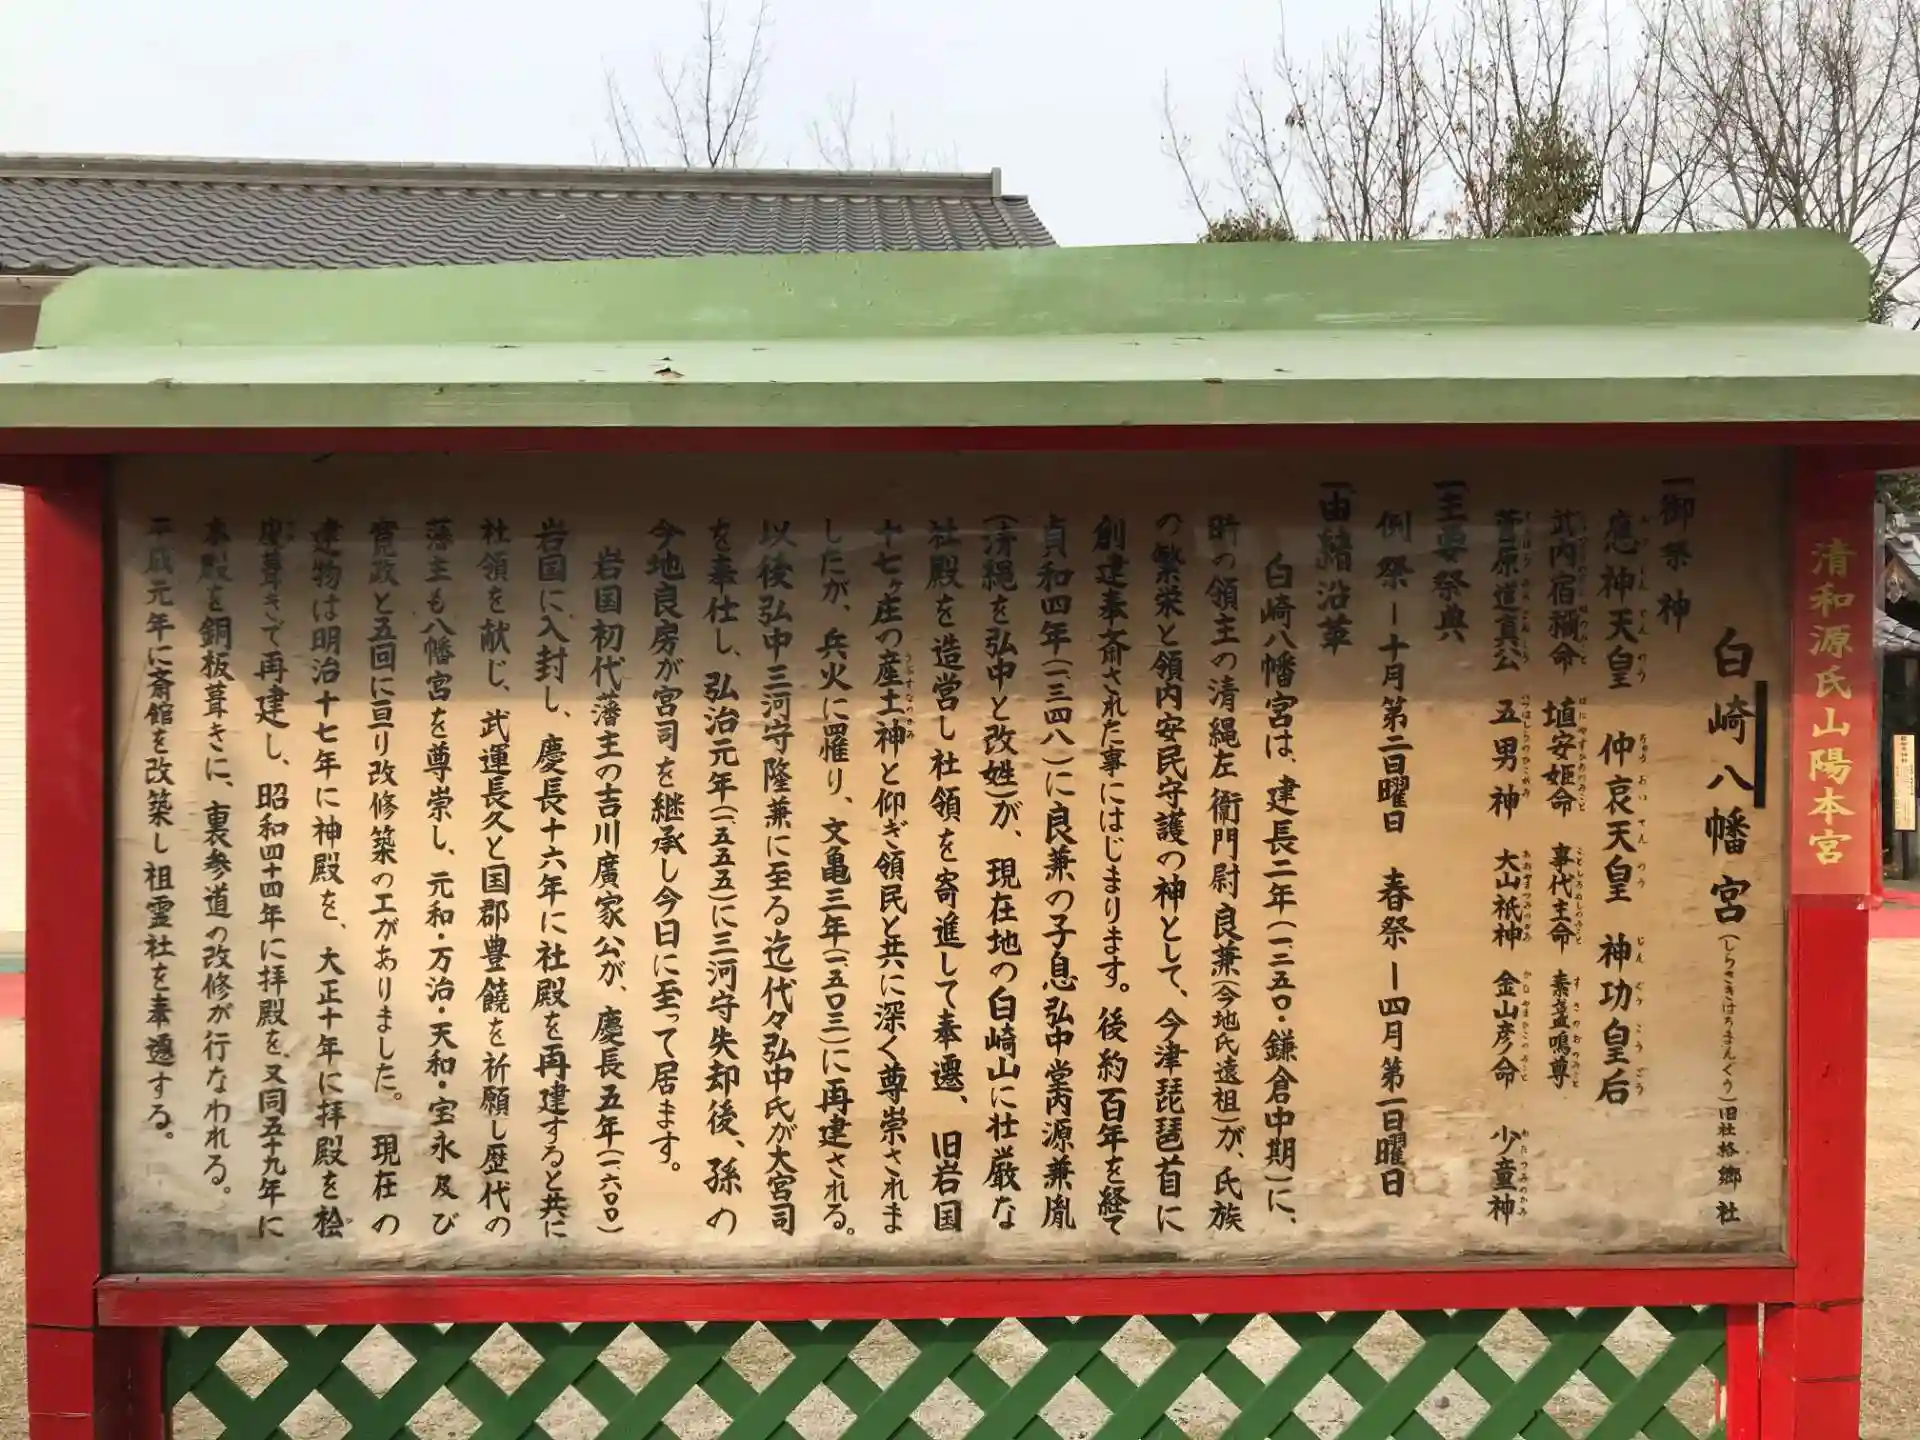 清和源氏山陽本宮
白崎八幡宮(しらさきはちまんぐう)旧社格 郷社
一御祭神
應神天皇 仲哀天皇 神功皇后
武内宿禰命 埴安姫命 事代主命 素盞鳴尊
菅原道真公 五男神 大山祇神 金山彦命 少童神
一主要祭典
例祭ー十月第二日曜日 春祭ー四月第一日曜日
一由緒沿革
白崎八幡宮は、建長二年(一二五〇・鎌倉中期)に、
時の領主の清縄左衞門尉良兼(今地氏遠祖)が、氏族
の繁栄と領内安民守護の神として、今津琵琶首に
創建奉斎された事にはじまります。後約百年を経て
貞和四年(一三四八)に良兼の子息弘中堂丙源兼胤
(清縄を弘中と改姓)が、現在地の白崎山に壮厳な
社殿を造営し社領を寄進して奉遷、旧岩国
十七ヶ庄の産土神と仰ぎ領民と共に深く尊崇されま
したが、兵火に罹り、文亀三年(一五〇三)に再建される。
以後弘中三河守隆兼に至る迄代々弘中氏が大宮司
を奉仕し、弘治元年(一五五五)に三河守失却後、孫の
今地良房が宮司を継承し今日に至って居ます。
岩国初代藩主の吉川廣家公が、慶長五年(一六〇〇)
岩国に入封し、慶長十六年に社殿を再建すると共に
社領を献じ、武運長久と国郡豊饒を祈願し歴代の
藩主も八幡宮を尊崇し、元和・万治・天和・宝永及び
寛政と五回に亘り改修築の工がありました。 現在の
建物は明治十七年に神殿を、大正十年に拝殿を桧
皮葺きで再建し、昭和四十四年に拝殿を、又同五十九年に
本殿を銅板葺きに、裏参道の改修が行なわれる。
平成元年に斎館を改築し祖霊社を奉遷する。